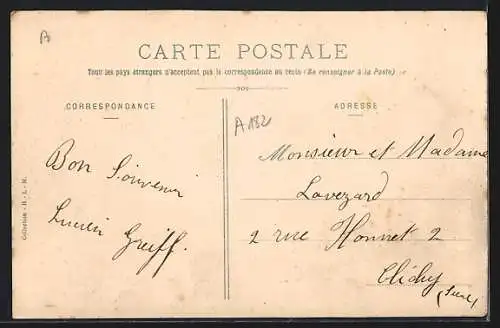 A
CARTE POSTALE
Tous les pays étrangers n'acceptent pas la correspondance au verso (Se renseigner à la Poste)
CORRESPONDANCE
ADRESSE
A 182
Bon Souvenir
Lucien Greiff.
Monsieur et Madame
Lavezard
2 rue Honnet 2
Clichy
(Seine)
Collection - H. - L. - M.